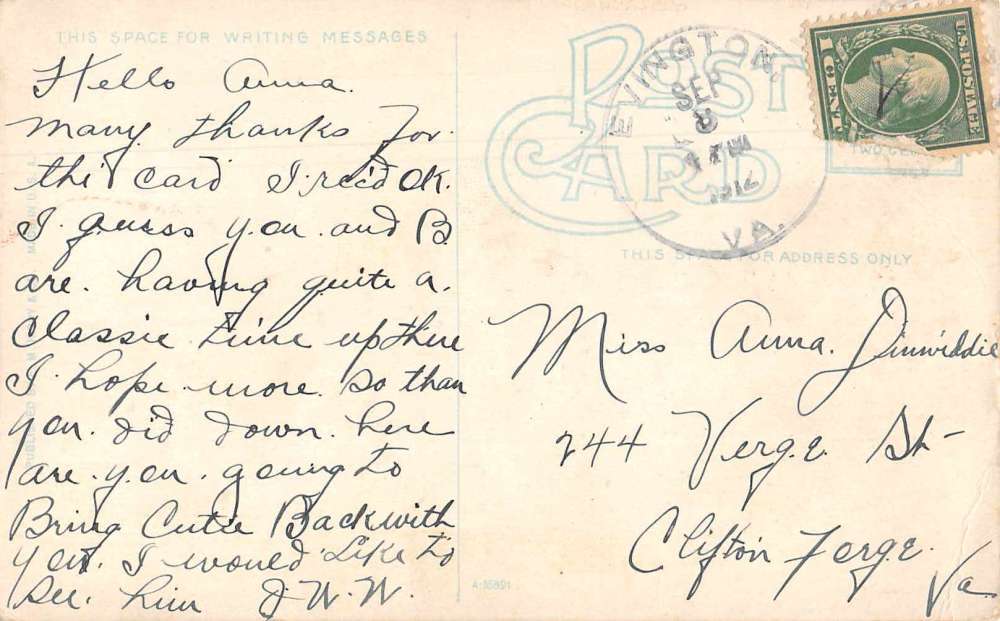 THIS SPACE FOR WRITING MESSAGES
Hello Anna.
many thanks for.
the card I rec'd OK.
I guess you and B
are. having quite a.
Classie time up there
I hope more so than
you. did down. here
are you. going to
Bring Cutie Back with
you. I would Like to
see. him J. W. W.
POST
CARD
EVINGTON,
SEP
8
1912
VA.
1 CENT 1
U.S. POSTAGE
THIS SPACE FOR ADDRESS ONLY
Miss Anna. Dinwiddie
244 Verge St-
Clifton Forge.
Va
A-35891